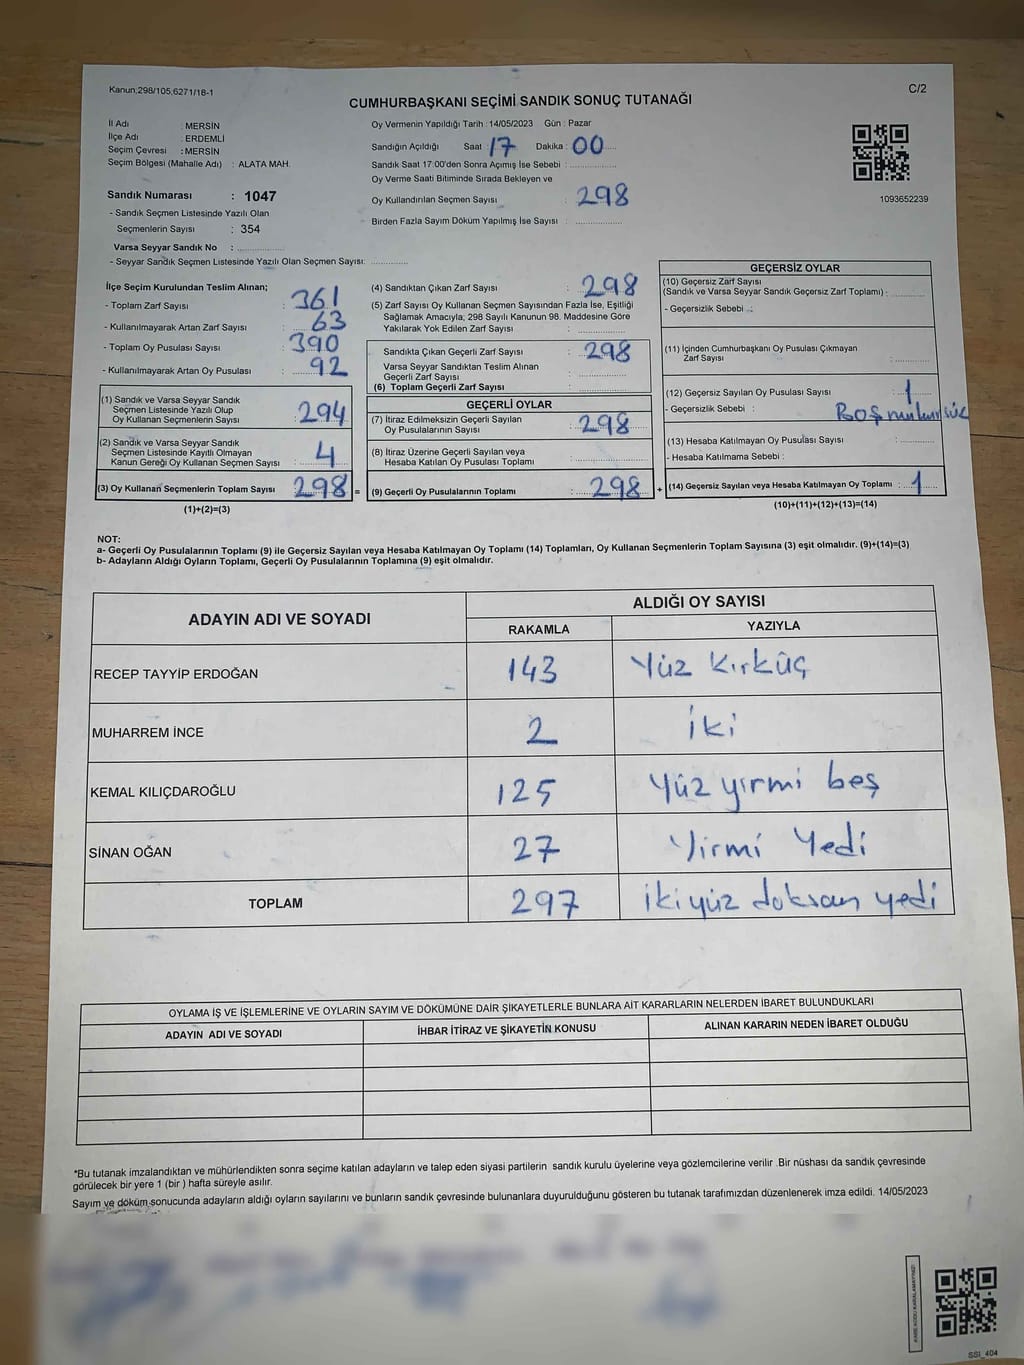 Kanun:298/105,6271/18-1
C/2
CUMHURBAŞKANI SEÇİMİ SANDIK SONUÇ TUTANAĞI
İl Adı : MERSİN
İlçe Adı : ERDEMLİ
Seçim Çevresi : MERSİN
Seçim Bölgesi (Mahalle Adı) : ALATA MAH.
Sandık Numarası : 1047
- Sandık Seçmen Listesinde Yazılı Olan
Seçmenlerin Sayısı : 354
Varsa Seyyar Sandık No :
- Seyyar Sandık Seçmen Listesinde Yazılı Olan Seçmen Sayısı:
Oy Vermenin Yapıldığı Tarih :14/05/2023 Gün : Pazar
Sandığın Açıldığı Saat : 17 Dakika : 00
Sandık Saat 17:00'den Sonra Açımış İse Sebebi :
Oy Verme Saati Bitiminde Sırada Bekleyen ve
Oy Kullandırılan Seçmen Sayısı : 298
Birden Fazla Sayım Döküm Yapılmış İse Sayısı :
1093652239
İlçe Seçim Kurulundan Teslim Alınan;
- Toplam Zarf Sayısı : 361
- Kullanılmayarak Artan Zarf Sayısı : 63
- Toplam Oy Pusulası Sayısı : 390
- Kullanılmayarak Artan Oy Pusulası : 92
(1) Sandık ve Varsa Seyyar Sandık
Seçmen Listesinde Yazılı Olup
Oy Kullanan Seçmenlerin Sayısı : 294
(2) Sandık ve Varsa Seyyar Sandık
Seçmen Listesinde Kayıtlı Olmayan
Kanun Gereği Oy Kullanan Seçmen Sayısı : 4
(3) Oy Kullanan Seçmenlerin Toplam Sayısı : 298 =
(1)+(2)=(3)
(4) Sandıktan Çıkan Zarf Sayısı : 298
(5) Zarf Sayısı Oy Kullanan Seçmen Sayısından Fazla İse, Eşitliği
Sağlamak Amacıyla, 298 Sayılı Kanunun 98. Maddesine Göre
Yakılarak Yok Edilen Zarf Sayısı :
Sandıkta Çıkan Geçerli Zarf Sayısı : 298
Varsa Seyyar Sandıktan Teslim Alınan
Geçerli Zarf Sayısı :
(6) Toplam Geçerli Zarf Sayısı :
GEÇERLİ OYLAR
(7) İtiraz Edilmeksizin Geçerli Sayılan
Oy Pusulalarının Sayısı : 298
(8) İtiraz Üzerine Geçerli Sayılan veya
Hesaba Katılan Oy Pusulası Toplamı :
(9) Geçerli Oy Pusulalarının Toplamı : 298 +
GEÇERSİZ OYLAR
(10) Geçersiz Zarf Sayısı
(Sandık ve Varsa Seyyar Sandık Geçersiz Zarf Toplamı) :
- Geçersizlik Sebebi :
(11) İçinden Cumhurbaşkanı Oy Pusulası Çıkmayan
Zarf Sayısı :
(12) Geçersiz Sayılan Oy Pusulası Sayısı : 1
- Geçersizlik Sebebi : Boş
(13) Hesaba Katılmayan Oy Pusulası Sayısı :
- Hesaba Katılmama Sebebi :
(14) Geçersiz Sayılan veya Hesaba Katılmayan Oy Toplamı : 1
(10)+(11)+(12)+(13)=(14)
NOT:
a- Geçerli Oy Pusulalarının Toplamı (9) ile Geçersiz Sayılan veya Hesaba Katılmayan Oy Toplamı (14) Toplamları, Oy Kullanan Seçmenlerin Toplam Sayısına (3) eşit olmalıdır. (9)+(14)=(3)
b- Adayların Aldığı Oyların Toplamı, Geçerli Oy Pusulalarının Toplamına (9) eşit olmalıdır.
ADAYIN ADI VE SOYADI
ALDIĞI OY SAYISI
RAKAMLA YAZIYLA
RECEP TAYYİP ERDOĞAN 143 Yüz Kırküç
MUHARREM İNCE 2 iki
KEMAL KILIÇDAROĞLU 125 Yüz yirmi beş
SİNAN OĞAN 27 Yirmi Yedi
TOPLAM 297 ikiyüz doksan yedi
OYLAMA İŞ VE İŞLEMLERİNE VE OYLARIN SAYIM VE DÖKÜMÜNE DAİR ŞİKAYETLERLE BUNLARA AİT KARARLARIN NELERDEN İBARET BULUNDUKLARI
ADAYIN ADI VE SOYADI İHBAR İTİRAZ VE ŞİKAYETİN KONUSU ALINAN KARARIN NEDEN İBARET OLDUĞU
*Bu tutanak imzalandıktan ve mühürlendikten sonra seçime katılan adayların ve talep eden siyasi partilerin sandık kurulu üyelerine veya gözlemcilerine verilir .Bir nüshası da sandık çevresinde
görülecek bir yere 1 (bir ) hafta süreyle asılır.
Sayım ve döküm sonucunda adayların aldığı oyların sayılarını ve bunların sandık çevresinde bulunanlara duyurulduğunu gösteren bu tutanak tarafımızdan düzenlenerek imza edildi. 14/05/2023
SSI_404